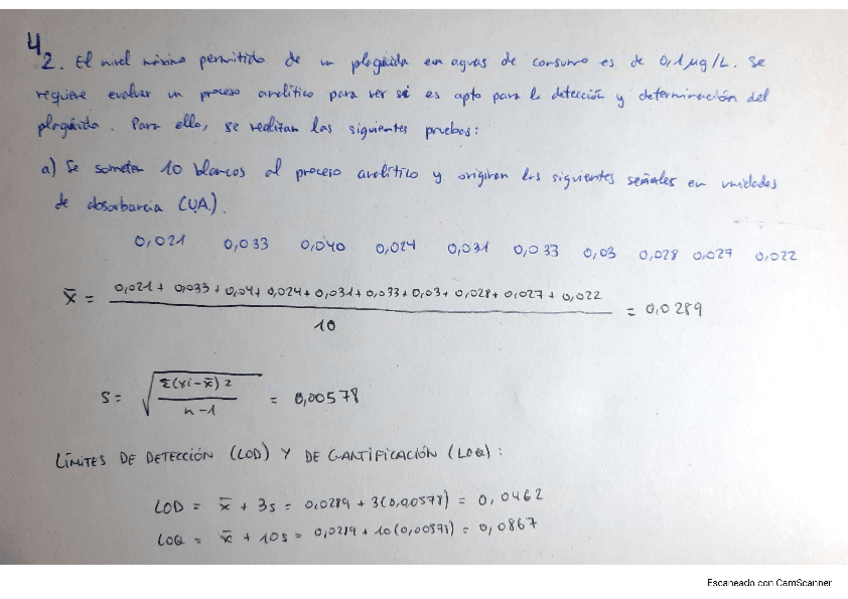 4
2. El nivel máximo permitido de un plaguicida en aguas de consumo es de 0,1 µg/L. Se
requiere evaluar un proceso analítico para ver si es apto para la detección y determinación del
plaguicida. Para ello, se realizan las siguientes pruebas:
a) Se someten 10 blancos al proceso analítico y originan las siguientes señales en unidades
de absorbancia (UA).
0,021 0,033 0,040 0,024 0,031 0,033 0,03 0,028 0,027 0,022
x̄ = (0,021 + 0,033 + 0,04 + 0,024 + 0,031 + 0,033 + 0,03 + 0,028 + 0,027 + 0,022) / 10 = 0,0289
S = √(Σ(xi-x̄)2 / n-1) = 0,00578
LÍMITES DE DETECCIÓN (LOD) Y DE CANTIFICACIÓN (LOQ):
LOD = x̄ + 3s = 0,0289 + 3(0,00578) = 0,0462
LOQ = x̄ + 10s = 0,0289 + 10(0,00578) = 0,0867
Escaneado con CamScanner